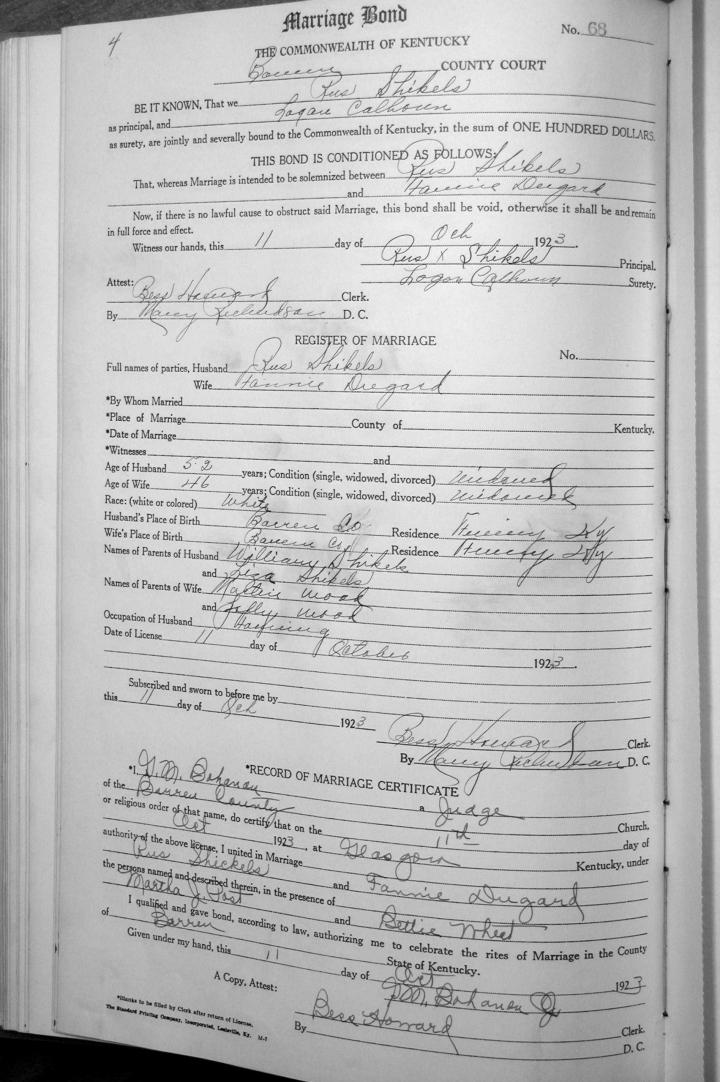 4
Marriage Bond
No. 68
THE COMMONWEALTH OF KENTUCKY
Barren COUNTY COURT
BE IT KNOWN, That we Rus Shikels
as principal, and Logan Calhoun
as surety, are jointly and severally bound to the Commonwealth of Kentucky, in the sum of ONE HUNDRED DOLLARS.
THIS BOND IS CONDITIONED AS FOLLOWS:
That, whereas Marriage is intended to be solemnized between Rus Shikels
and Fannie Dugard
Now, if there is no lawful cause to obstruct said Marriage, this bond shall be void, otherwise it shall be and remain
in full force and effect.
Witness our hands, this 11 day of Oct 1923.
Rus X Shikels Principal.
Logan Calhoun Surety.
Attest: Bess Howard Clerk.
By Mary Richardson D. C.
REGISTER OF MARRIAGE
No.
Full names of parties, Husband Rus Shikels
Wife Fannie Dugard
*By Whom Married
*Place of Marriage County of Kentucky.
*Date of Marriage
*Witnesses and
Age of Husband 52 years; Condition (single, widowed, divorced) Widowed
Age of Wife 46 years; Condition (single, widowed, divorced) Widowed
Race: (white or colored) White
Husband's Place of Birth Barren Co Residence Ky
Wife's Place of Birth Barren Co Residence Ky
Names of Parents of Husband William Shikels
and Liza Shikels
Names of Parents of Wife Martin Wood
and Wood
Occupation of Husband Farming
Date of License 11 day of October 1923.
Subscribed and sworn to before me by
this 11 day of Oct 1923
Bess Howard Clerk.
By Mary Richardson D. C.
*RECORD OF MARRIAGE CERTIFICATE
*I, Bohanan a Judge
of the Barren County Church,
or religious order of that name, do certify that on the 11th day of
Oct 1923, at Glasgow Kentucky, under
authority of the above license, I united in Marriage
Rus Shickels and Fannie Dugard
the persons named and described therein, in the presence of
Martha J. Post and Bettie Wheet
I qualified and gave bond, according to law, authorizing me to celebrate the rites of Marriage in the County
of Barren State of Kentucky.
Given under my hand, this 11 day of Oct 1923
Bohanan
A Copy, Attest: Bess Howard Clerk.
By D. C.
*Blanks to be filled by Clerk after return of License.
The Standard Printing Company, Incorporated, Louisville, Ky. M-7